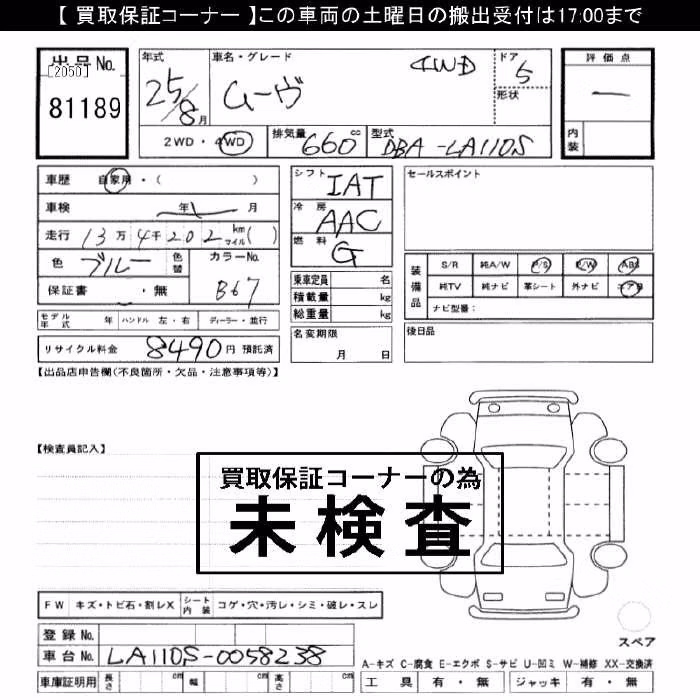 【 買取保証コーナー 】この車両の土曜日の搬出受付は17:00まで
出品No.
[2050]
81189
年式
25/8月
車名・グレード
ムーヴ 4WD
ドア
5
形状
評価点
ー
内装
2WD・4WD
排気量 660 cc
型式 DBA-LA110S
車歴 自家用・( )
車検 年 月
走行 13万4千202 km マイル( )
色 ブルー 色替
カラーNo. B67
保証書 ・無
モデル年式 年 ハンドル 左・右 ディーラー・並行
リサイクル料金 8490円 預託済
シフト IAT
冷房 AAC
燃料 G
乗車定員 名
積載量 kg
総重量 kg
名変期限
月 日
セールスポイント
装備品
S/R 純A/W P/S P/W ABS
純TV 純ナビ 革シート 外ナビ エアB
ナビ型番：
後日品
【出品店申告欄(不良箇所・欠品・注意事項等)】
【検査員記入】
買取保証コーナーの為
未検査
FW キズ・トビ石・割レX シート内装 コゲ・穴・汚レ・シミ・破レ・スレ
登録No.
車台No. LA110S-0058238
車庫証明用 長さ cm 幅 cm 高さ cm
スペア
A-キズ C-腐食 E-エクボ S-サビ U-凹ミ W-補修 XX-交換済
工具 有・無 ジャッキ 有・無